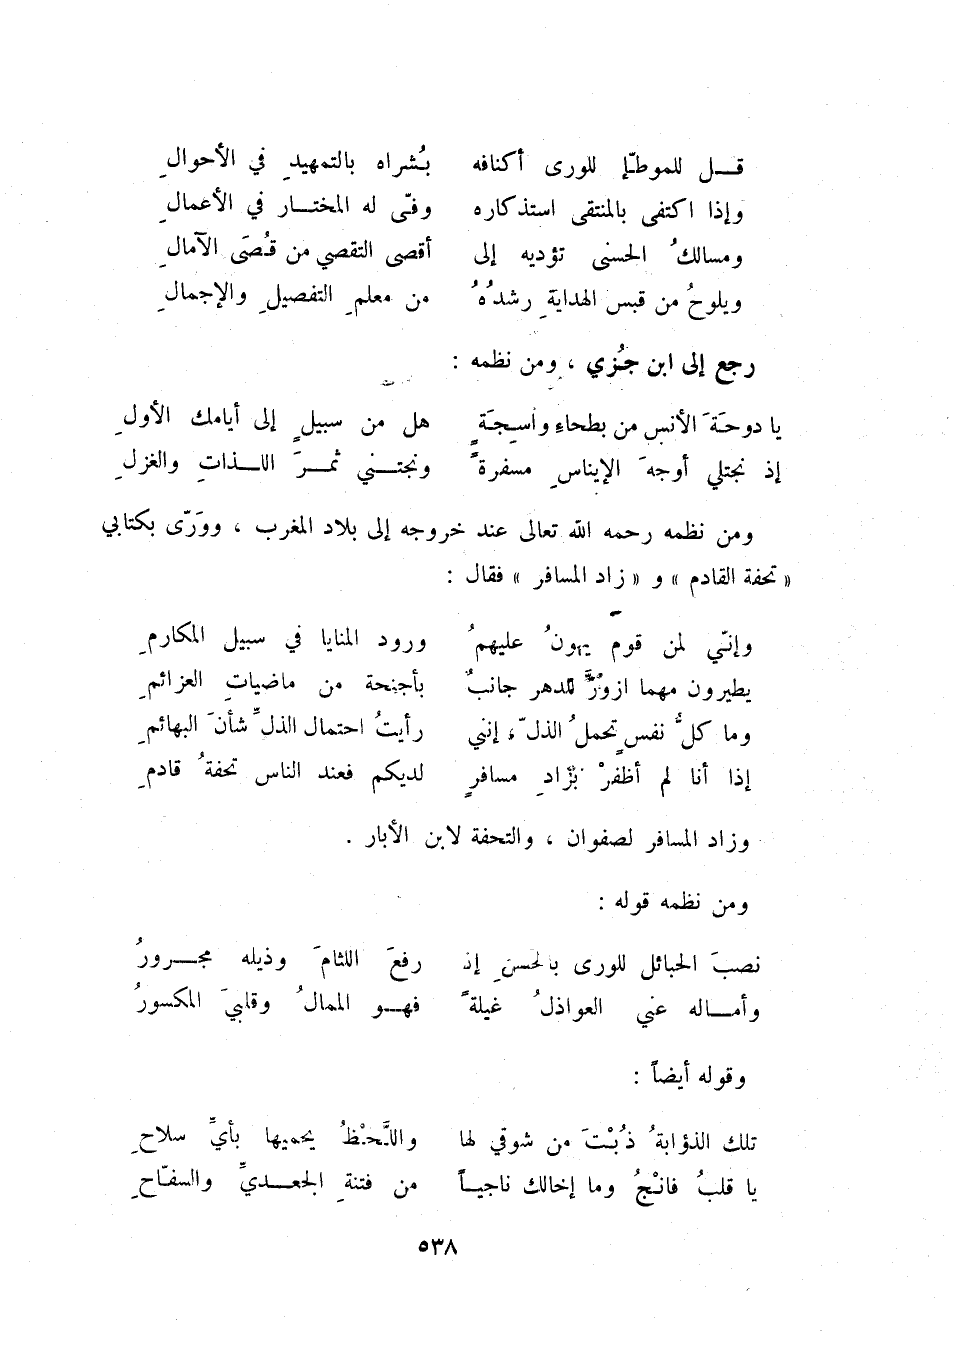 قـــل للموطّإ للورى أكنافه بُشراه بالتمهيدِ في الأحوالِ
وإذا اكتفى بالمنتقى استذكاره وفّى له المختـــار في الأعمالِ
ومسالكُ الحسنى تؤديه إلى أقصى التقصي من قُصَى الآمالِ
ويلوحُ من قبس الهدايةِ رشدُهُ من معلمِ التفصيلِ والإجمالِ
رجع إلى ابن جُزي ، ومن نظمه :
يا دوحَةَ الأنس من بطحاء واسِجَةٍ هل من سبيلٍ إلى أيامك الأولِ
إذ نجتلي أوجهَ الإيناسِ مسفرةً ونجتـــني ثمـــرَ اللـــذاتِ والغزلِ
ومن نظمه رحمه الله تعالى عند خروجه إلى بلاد المغرب ، وورّى بكتابي
« تحفة القادم » و « زاد المسافر » فقال :
وإنّي لمن قوم يهونُ عليهمُ ورود المنايا في سبيل المكارمِ
يطيرون مهما ازورَّ للدهر جانبٌ بأجنحة من ماضياتِ العزائمِ
وما كلُّ نفسٍ تحملُ الذلّ ، إنني رأيتُ احتمال الذلِّ شأنَ البهائمِ
إذا أنا لم أظفرْ بزادِ مسافرٍ لديكم فعند الناس تحفةُ قادمِ
وزاد المسافر لصفوان ، والتحفة لابن الأبار .
ومن نظمه قوله :
نصبَ الحبائل للورى بالحسنِ إذ رفعَ اللثامَ وذيله مجـــرورُ
وأمـــاله عني العواذلُ غيلةً فهـــو الممالُ وقلبيَ المكسورُ
وقوله أيضاً :
تلك الذؤابةُ ذُبْتَ من شوقي لها واللَّحْظُ يحميها بأيِّ سلاحِ
يا قلبُ فانْجُ وما إخالك ناجيـــاً من فتنةِ الجعـــديِّ والسفّاحِ
٥٣٨